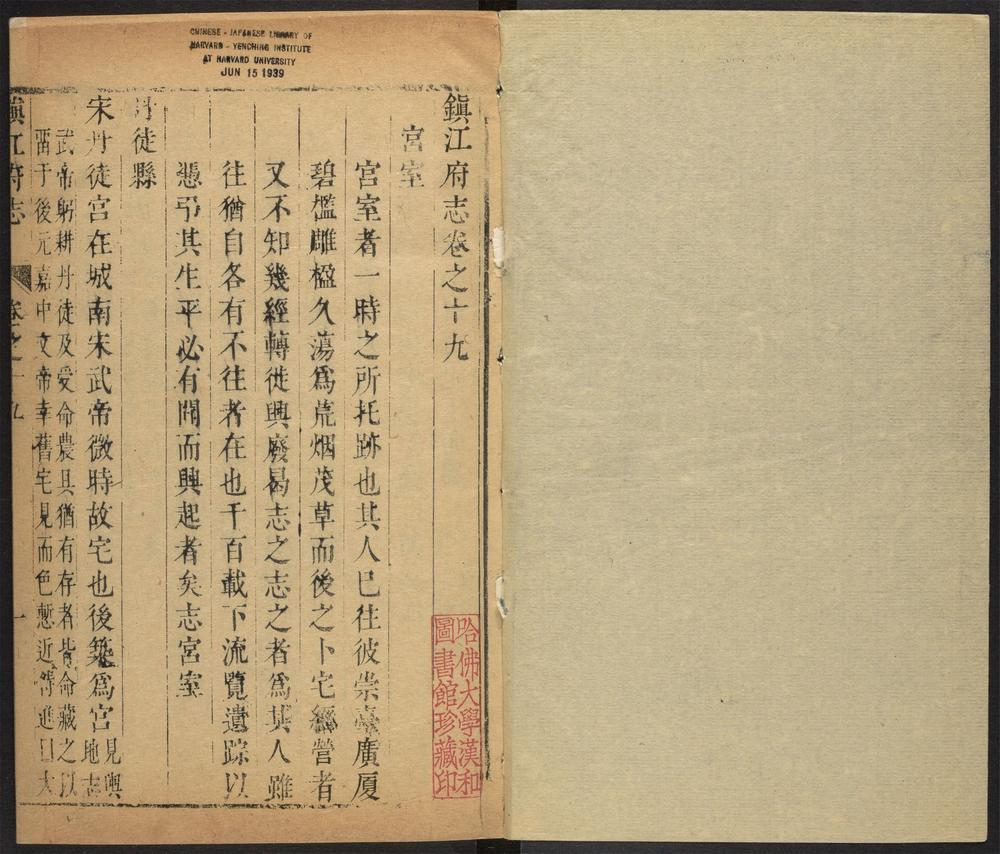 CHINESE - JAPANESE LIBRARY OF
HARVARD - YENCHING INSTITUTE
AT HARVARD UNIVERSITY
JUN 15 1939
鎮江府志卷之十九
宮室
宮室者一時之所托跡也其人已往彼崇臺廣厦
碧檻雕楹久蕩爲荒烟茂草而後之卜宅經營者
又不知幾經轉徙興廢曷志之志之者爲其人雖
往猶自各有不往者在也千百載下流覽遺踪以
憑弔其生平必有聞而興起者矣志宮室
丹徒縣
宋丹徒宮在城南宋武帝微時故宅也後築爲宮
見輿
地志
武帝躬耕丹徒及受命農具猶有存者皆命藏之以
畱于後元嘉中文帝幸舊宅見而色慙近侍進曰大
鎮江府志
卷之十九
一
哈佛大學漢和
圖書館珍藏印